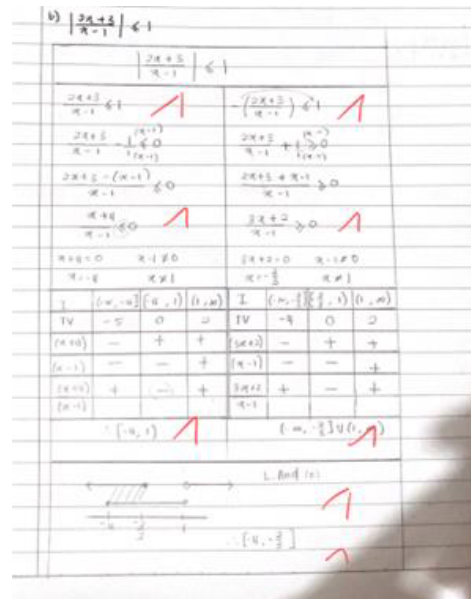 b) | 2x+3 / x-1 | ≤ 1
| 2x+3 / x-1 | ≤ 1
2x+3 / x-1 ≤ 1
2x+3 / x-1 - 1 (x-1) / 1 (x-1) ≤ 0
2x+3 - (x-1) / x-1 ≤ 0
x+4 / x-1 ≤ 0
x+4=0 x-1≠0
x=-4 x≠1
I (-∞,-4] [-4,1) (1,∞)
TV -5 0 2
(x+4) - + +
(x-1) - - +
(x+4) / (x-1) + (-) +
∴ [-4,1)
-( 2x+3 / x-1 ) ≤ 1
2x+3 / x-1 + 1 (x-1) / 1 (x-1) ≥ 0
2x+3 + x-1 / x-1 ≥ 0
3x+2 / x-1 ≥ 0
3x+2=0 x-1≠0
x=-2/3 x≠1
I (-∞,-2/3] [-2/3,1) (1,∞)
TV -4 0 2
(3x+2) - + +
(x-1) - - +
3x+2 / x-1 + - +
(-∞,-2/3] U (1,∞)
-4 -2/3 1
∴ [-4,-2/3]